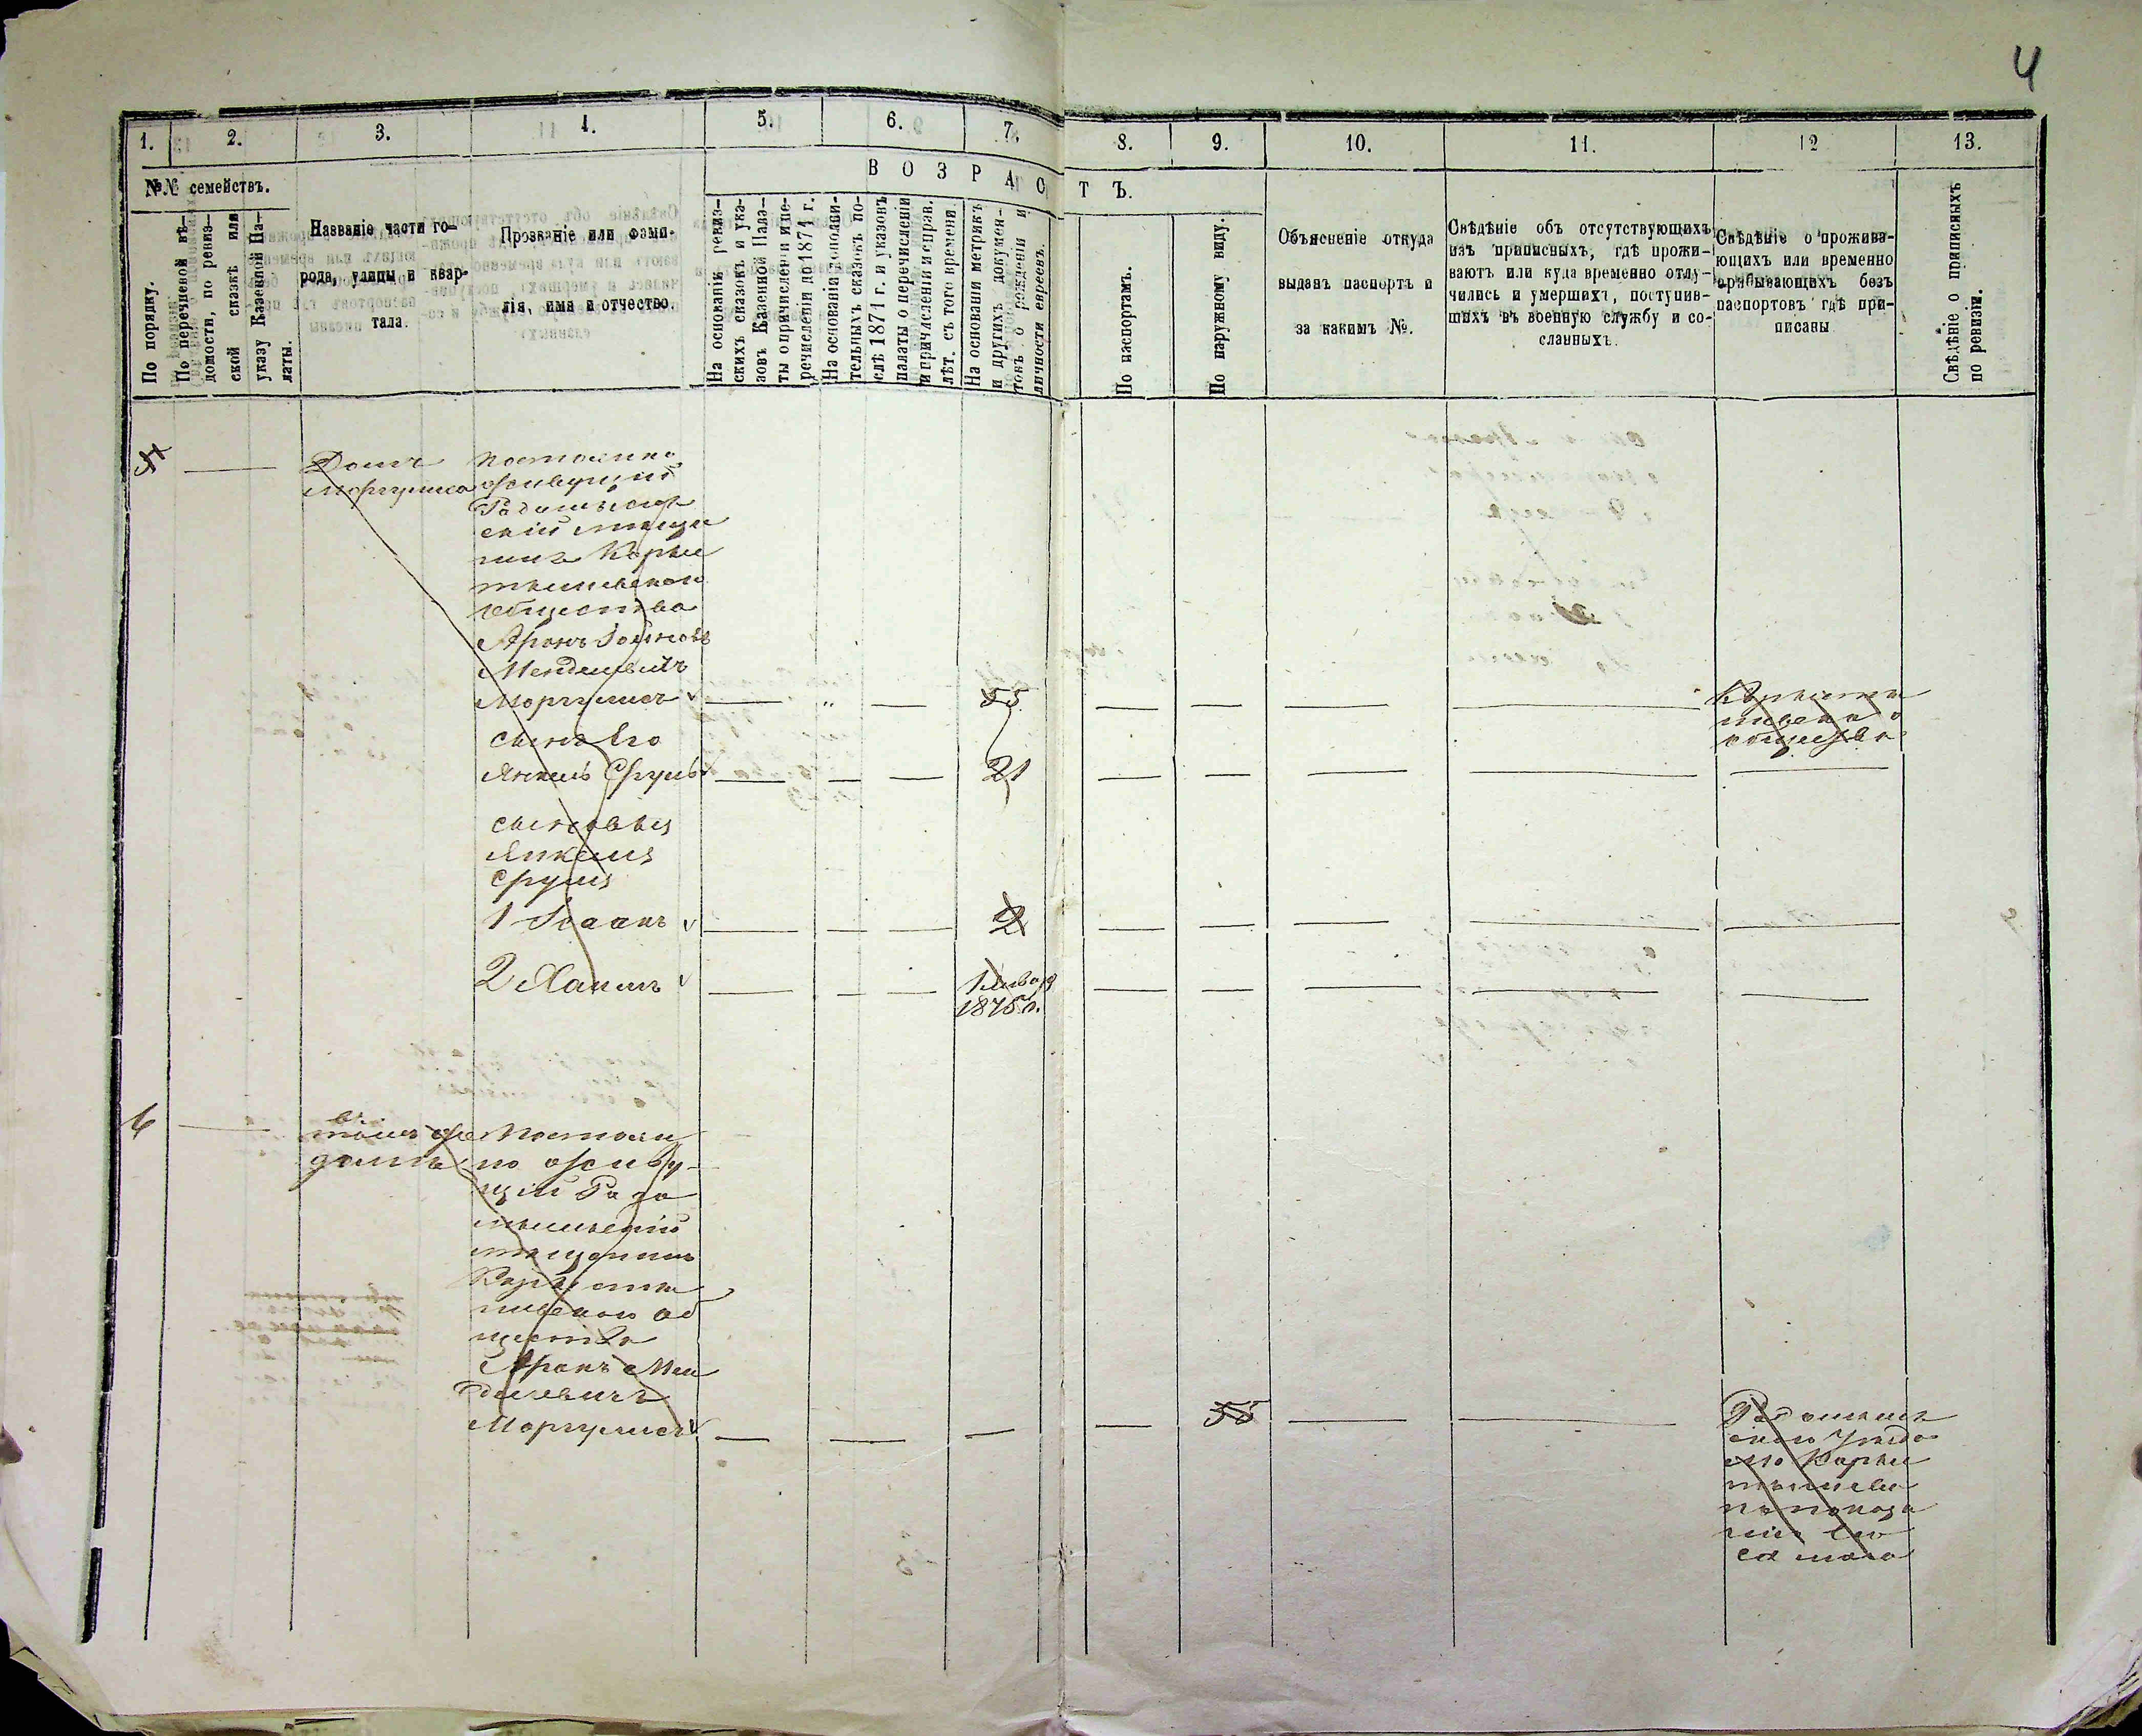 4
1.
2.
3.
4.
5.
6.
7.
8.
9.
10.
11.
12
13.
№№ семействъ.
По порядку.
По перечневой вѣ-
домости, по ревиз-
ской сказкѣ или
указу Казенной Па-
латы.
Названіе части го-
рода, улицы и квар-
тала.
Прозваніе или фами-
лія, имя и отчество.
ВОЗРАСТЪ.
На основаніи ревиз-
скихъ сказокъ и ука-
зовъ Казенной Пала-
ты о причисленіи и пе-
речисленіи до 1871 г.
На основаніи дополни-
тельныхъ сказокъ по-
слѣ 1871 г. и указовъ
палаты о перечисленіи
и причисленіи и справ.
лѣт. съ того времени.
На основаніи метрикъ
и другихъ докумен-
товъ о рожденіи и
личности евреевъ.
По паспортамъ.
По наружному виду.
Объясненіе откуда
выданъ паспортъ и
за какимъ №.
Свѣдѣніе объ отсутствующихъ
изъ приписныхъ, гдѣ прожи-
ваютъ или куда временно отлу-
чились и умершихъ, поступив-
шихъ въ военную службу и со-
сланныхъ.
Свѣдѣніе о прожива-
ющихъ или временно
прибывающихъ безъ
паспортовъ гдѣ при-
писаны
Свѣдѣніе о приписныхъ
по ревизіи.
5
Домъ
Моргулиса
постоянно
живущій
Радомысль
скій мѣща
нинъ Корни
общества
Аронъ
Менделевичъ
Моргулисъ
55
общества
сынъ Его
Янкель Сруль
21
сыновья
Янкеля
Сруля
1 Исаакъ
2
2 Хаимъ
1 Января
1875 г.
6
въ
томъ же
домѣ
Постоян
но живу-
щій Радо
мысльскій
мѣщанинъ
об
щества
Аронъ Мен
делевичъ
Моргулисъ
55
Радомысль
скаго Уѣзда
по показа
нію Его
самаго